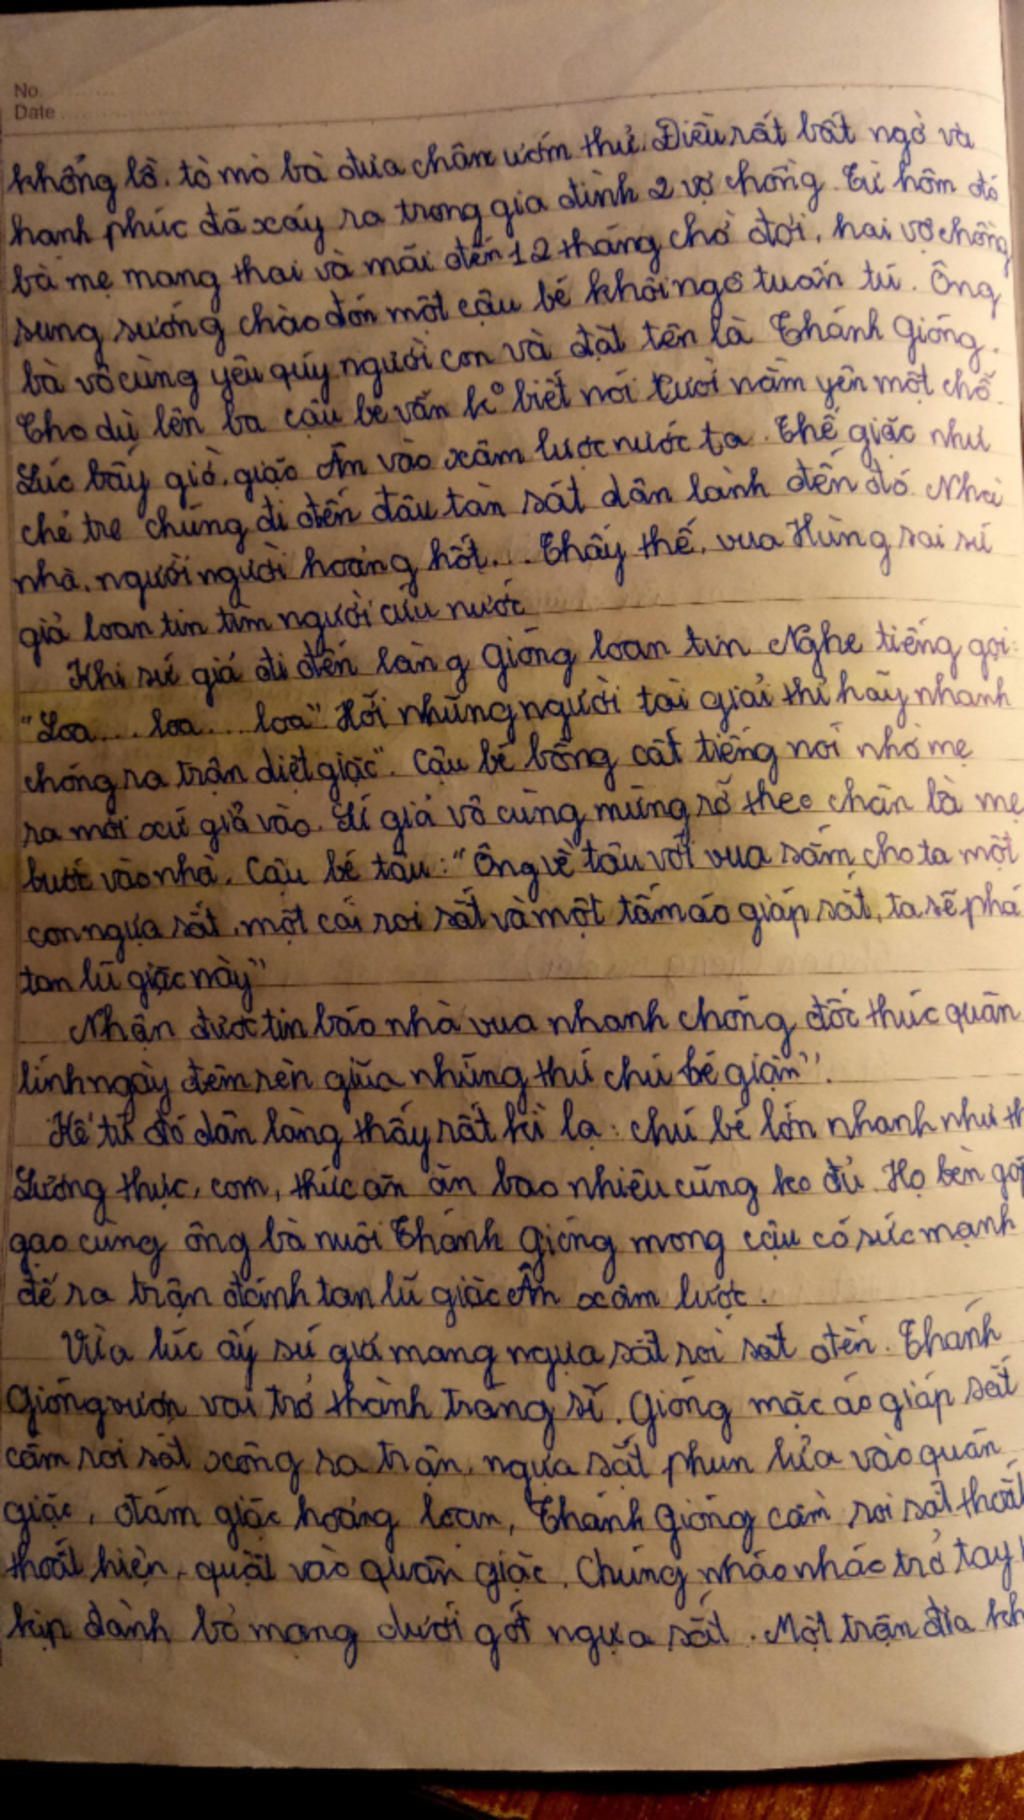 No.
Date
khổng lồ. tò mò bà đưa chân ướm thử. Điều rất bất ngờ và
hạnh phúc đã xảy ra trong gia đình 2 vợ chồng. Từ hôm đó
bà mẹ mang thai và mãi đến 12 tháng chờ đợi, hai vợ chồng
sung sướng chào đón một cậu bé khôi ngô tuấn tú. Ông
bà vô cùng yêu quý người con và đặt tên là Thánh Gióng.
Cho dù lên ba cậu bé vẫn k° biết nói cười nằm yên một chỗ.
Lúc bấy giờ, giặc Ân vào xâm lược nước ta. Thế giặc như
chẻ tre chúng đi đến đâu tàn sát dân lành đến đó. Nhà
nhà, người người hoảng hốt... Thấy thế, vua Hùng sai sứ
giả loan tin tìm người cứu nước
Khi sứ giả đi đến làng Gióng loan tin Nghe tiếng gọi:
"Loa... loa... loa" Hỡi những người tài giải thì hãy nhanh
chóng ra trận diệt giặc". Cậu bé bỗng cất tiếng nói nhờ mẹ
ra mời xứ giả vào. Sứ giả vô cùng mừng rỡ theo chân là mẹ
bước vào nhà. Cậu bé tâu: "Ông về tâu với vua sắm cho ta một
con ngựa sắt, một cái roi sắt và một tấm áo giáp sắt, ta sẽ phá
tan lũ giặc này"
Nhận được tin báo nhà vua nhanh chóng đốc thúc quân
lính ngày đêm rèn giũa những thứ chú bé giặn".
Kể từ đó dân làng thấy rất kì lạ: chú bé lớn nhanh như th
Lương thực, cơm, thức ăn ăn bao nhiêu cũng ko đủ. Họ bèn góp
gạo cùng ông bà nuôi Thánh Gióng mong cậu có sức mạnh
để ra trận đánh tan lũ giặc Ân xâm lược.
Vừa lúc ấy sứ giả mang ngựa sắt roi sắt đến. Thánh
Gióng vươn vai trở thành tráng sĩ. Gióng mặc áo giáp sắt
cầm roi sắt xông ra trận, ngựa sắt phun lửa vào quân
giặc, đám giặc hoảng loạn, Thánh Gióng cầm roi sắt thoắt
thoắt hiện, quật vào quân giặc. Chúng nháo nhác trở tay
kịp đành bỏ mạng dưới gót ngựa sắt. Một trận địa kh